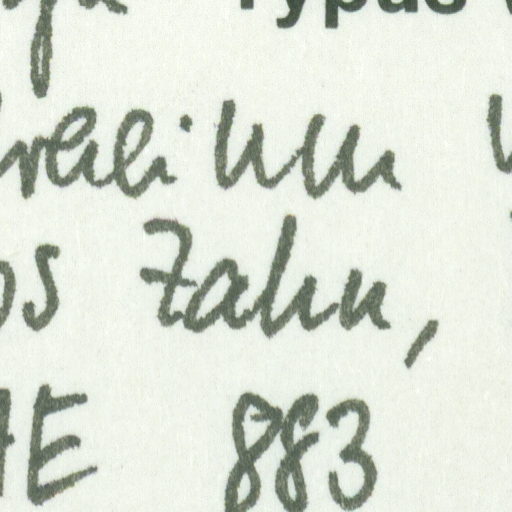 Typus
racium
os Zahn,
E 883